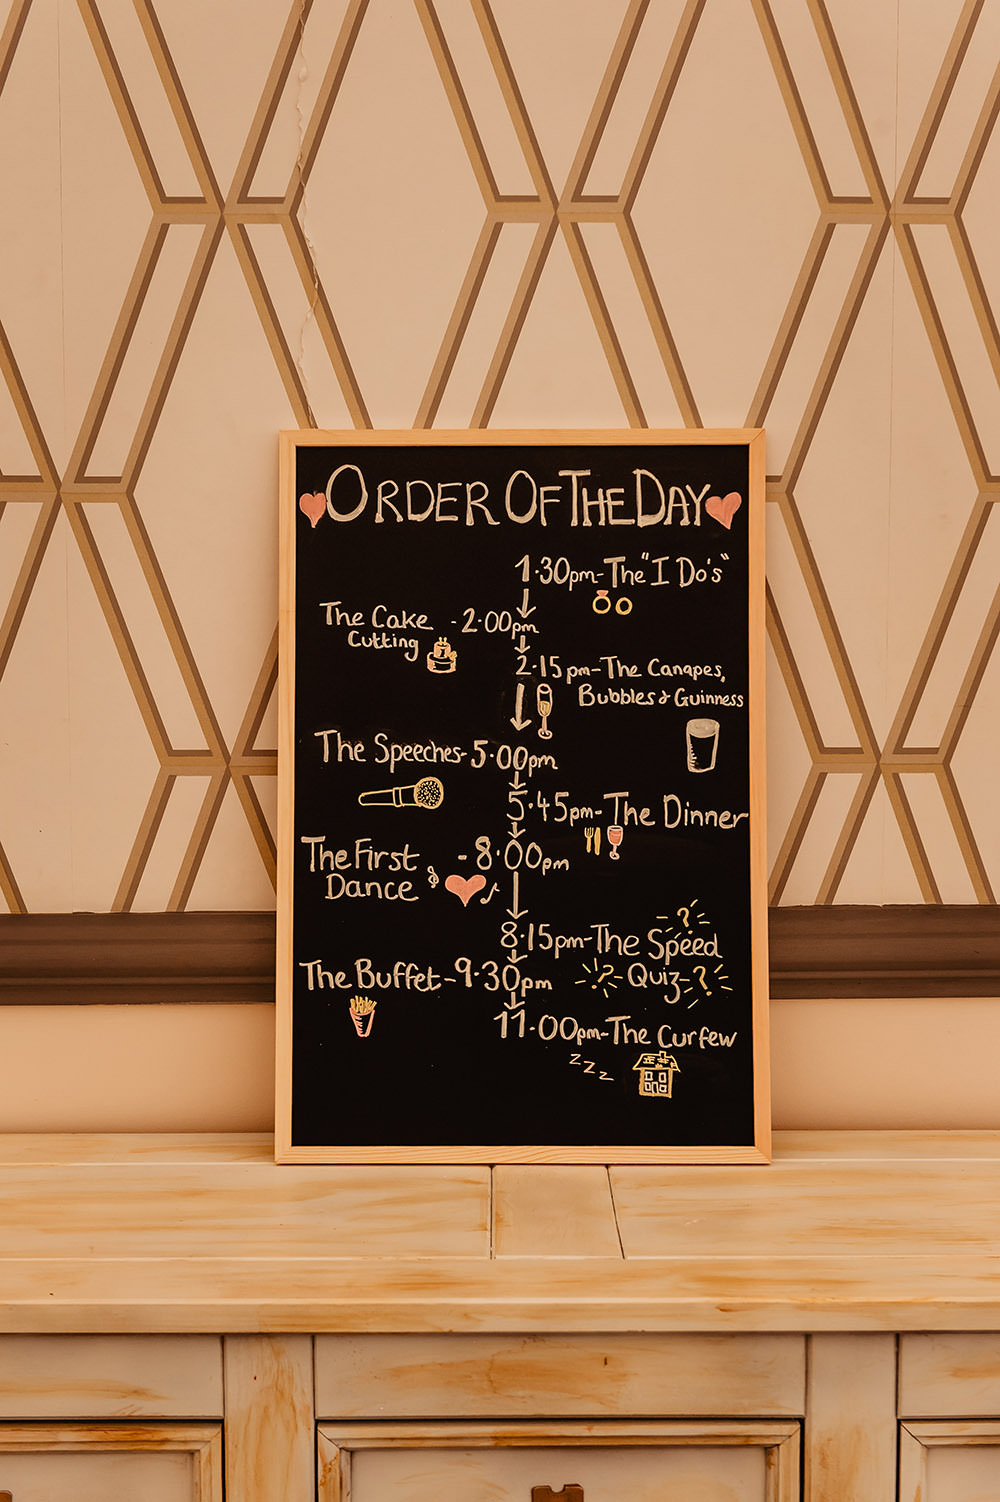 ORDER OF THE DAY
1.30pm-The "I Do's"
The Cake -2.00pm
Cutting
2.15pm-The Canapes,
Bubbles & Guinness
The Speeches-5.00pm
5.45pm-The Dinner
The First -8.00pm
Dance
8.15pm-The Speed
?
The Buffet-9.30pm
-?-Quiz-?
11.00pm-The Curfew
zzz